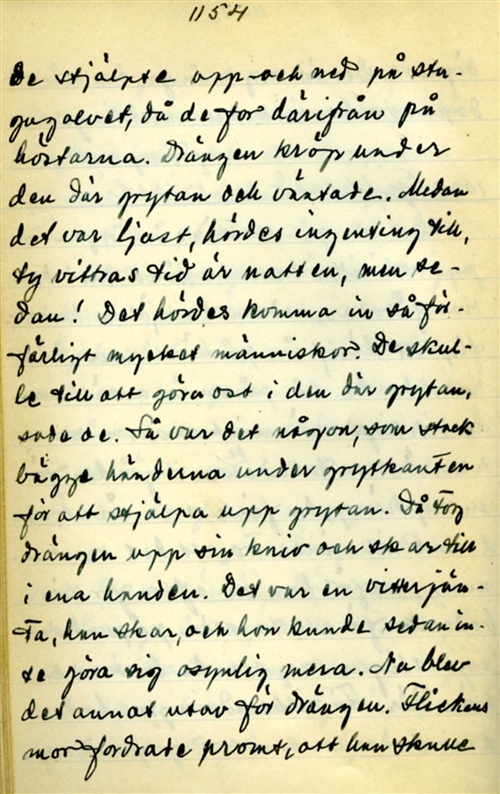 1154
de stjälpte upp-och ned på stu-
gugolvet, då de for därifrån på
höstarna. Drängen kröp under
den där grytan och väntade. Medan
det var ljust, hördes ingenting till,
ty vittras tid är natten, men se-
dan! Det hördes komma in så för-
färligt mycket människor. De skul-
le till att göra ost i den där grytan,
sade de. Så var det någon, som stack
bägge händerna under grytkanten
för att stjälpa upp grytan. Då tog
drängen upp sin kniv och skar till
i ena handen. Det var en vitterjän-
ta, han skar, och hon kunde sedan in-
te göra sig osynlig mera. Nu blev
det annat utav för drängen. Flickans
mor fordrade promt, att han skulle